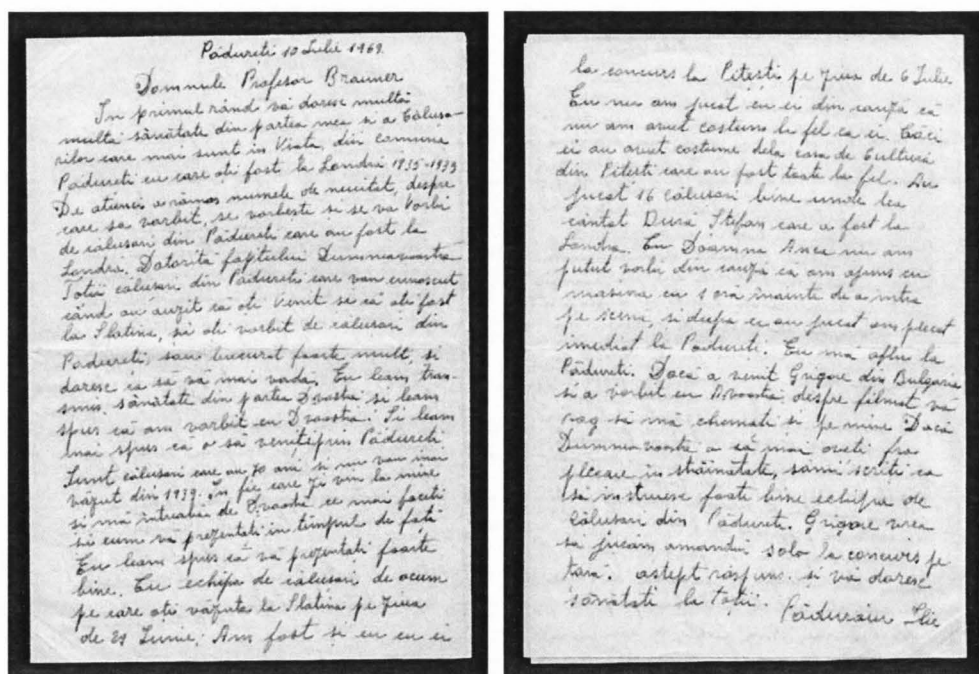 Pădureți 10 Iulie 1969.
Domnule Profesor Brauner
In primul rând vă doresc multă
multă sănătate din partea mea si a Călusa-
rilor care mai sunt in Viata, din comuna
Padureti cu care ati fost la Londra 1935-1939
De atunci a rămas numele de neuitat, despre
care sa vorbit, se vorbeste si se va Vorbi
de călusari din Padureti care au fost la
Londra. Datorită faptului Dumneavoastră
Totii călusari din Padureti care vau cunoscut
când au auzit că ati Venit si că ati fost
la Slatina, si ati vorbit de călusari din
Padureti, sau bucurat foarte mult, si
doresc ca sa vă mai vadă. Eu leam trans-
mis, sănătate din partea Dvoastră si leam
spus că am vorbit cu Dvoastră. Si leam
mai spus că o să veniti prin Pădureti
Sunt călusari care au 70 ani si nu vau mai
văzut din 1939. In fie care Zi vin la mine
si mă intreabă de Dvoastă ce mai faceti
si cum vă prezentati in timpul de fată
Eu leam spus că vă prezentati foarte
bine. Cu echipa de călusari de acum
pe care ati văzuto la Slatina pe Ziua
de 29 Iunie; Am fost si eu cu ei
la concurs la Pitești pe Ziua de 6 Iulie
Eu nu am jucat cu ei din cauză că
nu am avut costum la fel ca ei. Căci
ei au avut costume dela casa de Cultură
din Pitesti care au fost toate la fel. Au
jucat 16 călusari bine unde lea
cântat Dură Stefan care a fost la
Londra. Cu Doamna Anca nu am
putut vorbi din cauză ca am ajuns cu
masina cu 1 oră inainte de a intra
pe scenă, si dupa ce au jucat am plecat
imediat la Padureti. Eu ma aflu la
Pădureti. Dacă a venit Grigore din Bulgaria
si a vorbit cu Dvoastă, despre filmat vă
rog să mă chemati si pe mine Dacă
Dumneavoastă o că mai aveti fro
plecare in străinătate, sămi scriti ca
să instruiesc foate bine echipa de
Călusari din Pădureti. Grigore vrea
să jucăm amandoi solo la concurs pe
tară. astept răspuns. si vă doresc
sănătati la totii.
Păduraru Ilie